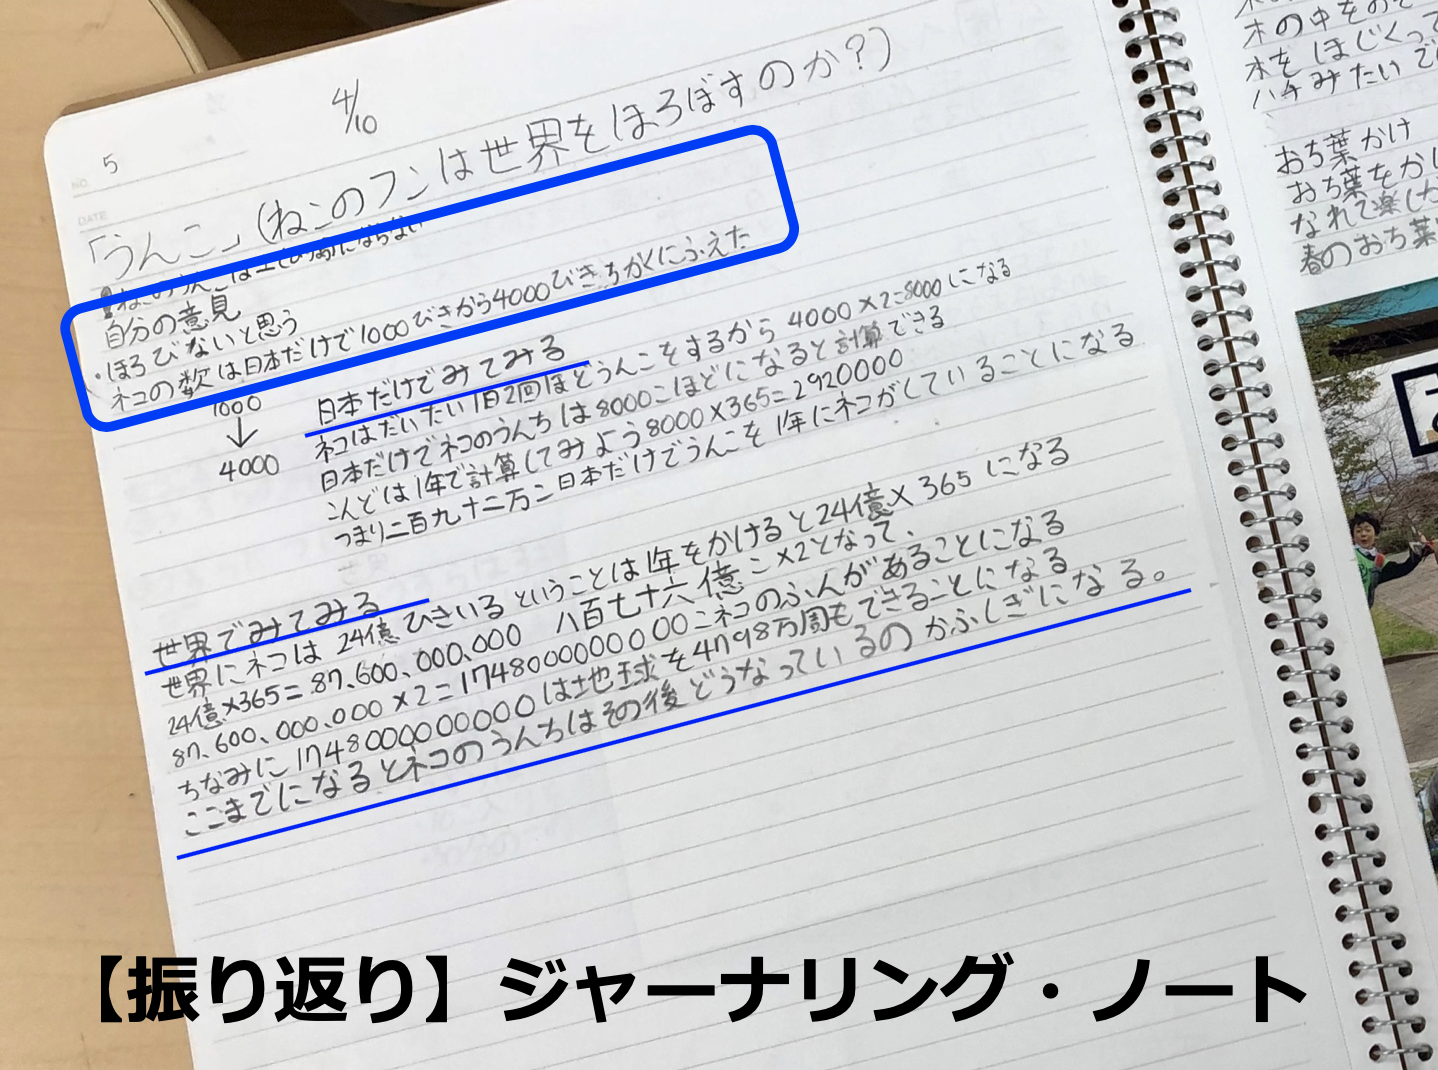 4/10
NO. 5
DATE
「うんこ」(ねこのフンは世界をほろぼすのか?)
ねこのうんこは土の為にならない
自分の意見
・ほろびないと思う
ネコの数は日本だけで1000びきから4000びきちかくにふえた
1000
↓
4000
日本だけでみてみる
ネコはだいたい1日2回ほどうんこをするから4000×2=8000になる
日本だけでネコのうんちは8000こほどになると計算できる
こんどは1年で計算してみよう8000×365=2920000
つまり二百九十二万こ日本だけでうんこを1年にネコがしていることになる
世界でみてみる
世界にネコは24億ひきいるということは1年をかけると24億×365になる
24億×365=87,600,000,000 八百七十六億こ×2となって、
87,600,000,000×2=174800000000こネコのふんがあることになる
ちなみに174800000000は地球を4798万周もできることになる
ここまでになるとネコのうんちはその後どうなっているのかふしぎになる。
木の中をおそ
木をほじくって
ハチみたいで
おち葉かけ
おち葉をか
なれて楽した
春のおち葉
【振り返り】ジャーナリング・ノート